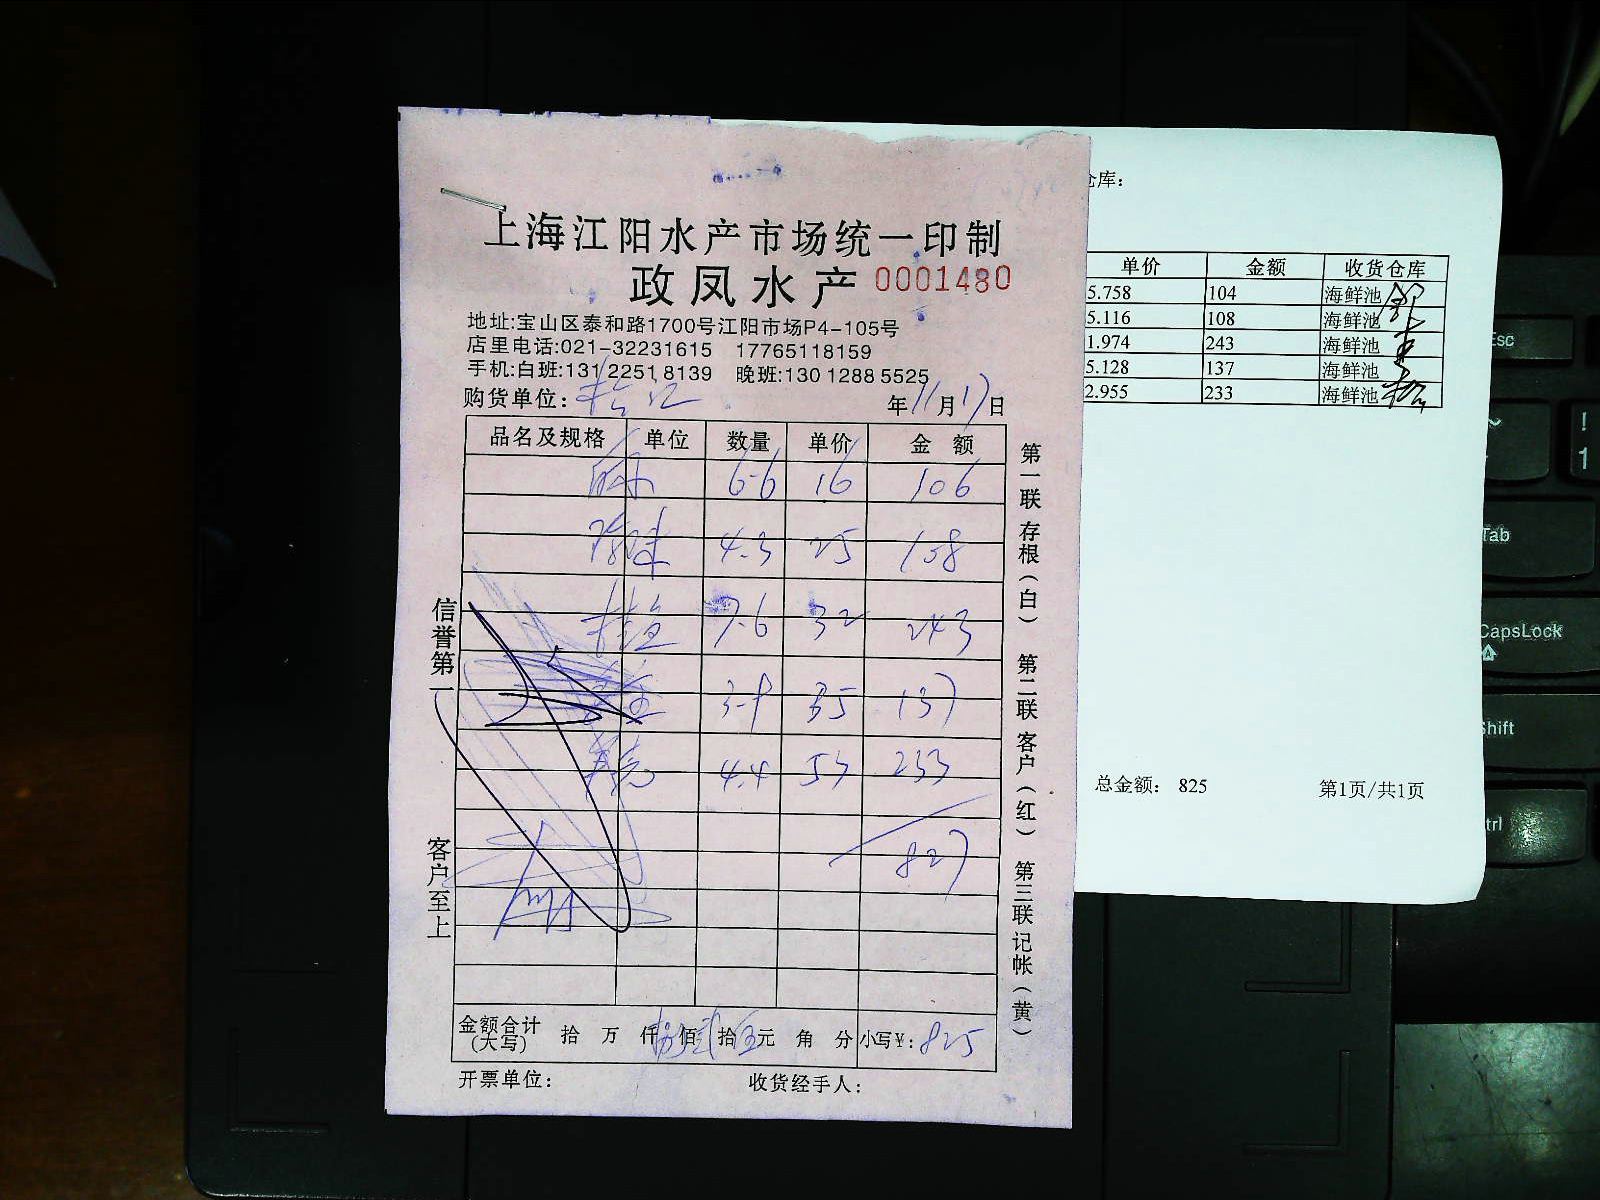 上海江阳水产市场统一印制
政凤水产 0001480
地址:宝山区泰和路1700号江阳市场P4-105号
店里电话:021-32231615 17765118159
手机:白班:131 2251 8139 晚班:130 1288 5525
购货单位:
年11月17日
品名及规格 单位 数量 单价 金额
6.6 16 106
4.3 25 108
7.6 32 243
3.9 35 137
4.4 53 233
827
金额合计(大写) 拾 万 仟 佰 拾 元 角 分 小写¥: 825
开票单位: 收货经手人:
信誉第一
客户至上
第一联存根(白) 第二联客户(红) 第三联记帐(黄)
仓库:
单价 金额 收货仓库
5.758 104 海鲜池
5.116 108 海鲜池
1.974 243 海鲜池
5.128 137 海鲜池
2.955 233 海鲜池
总金额: 825 第1页/共1页
Esc
~
!
1
Tab
CapsLock
A
Shift
trl